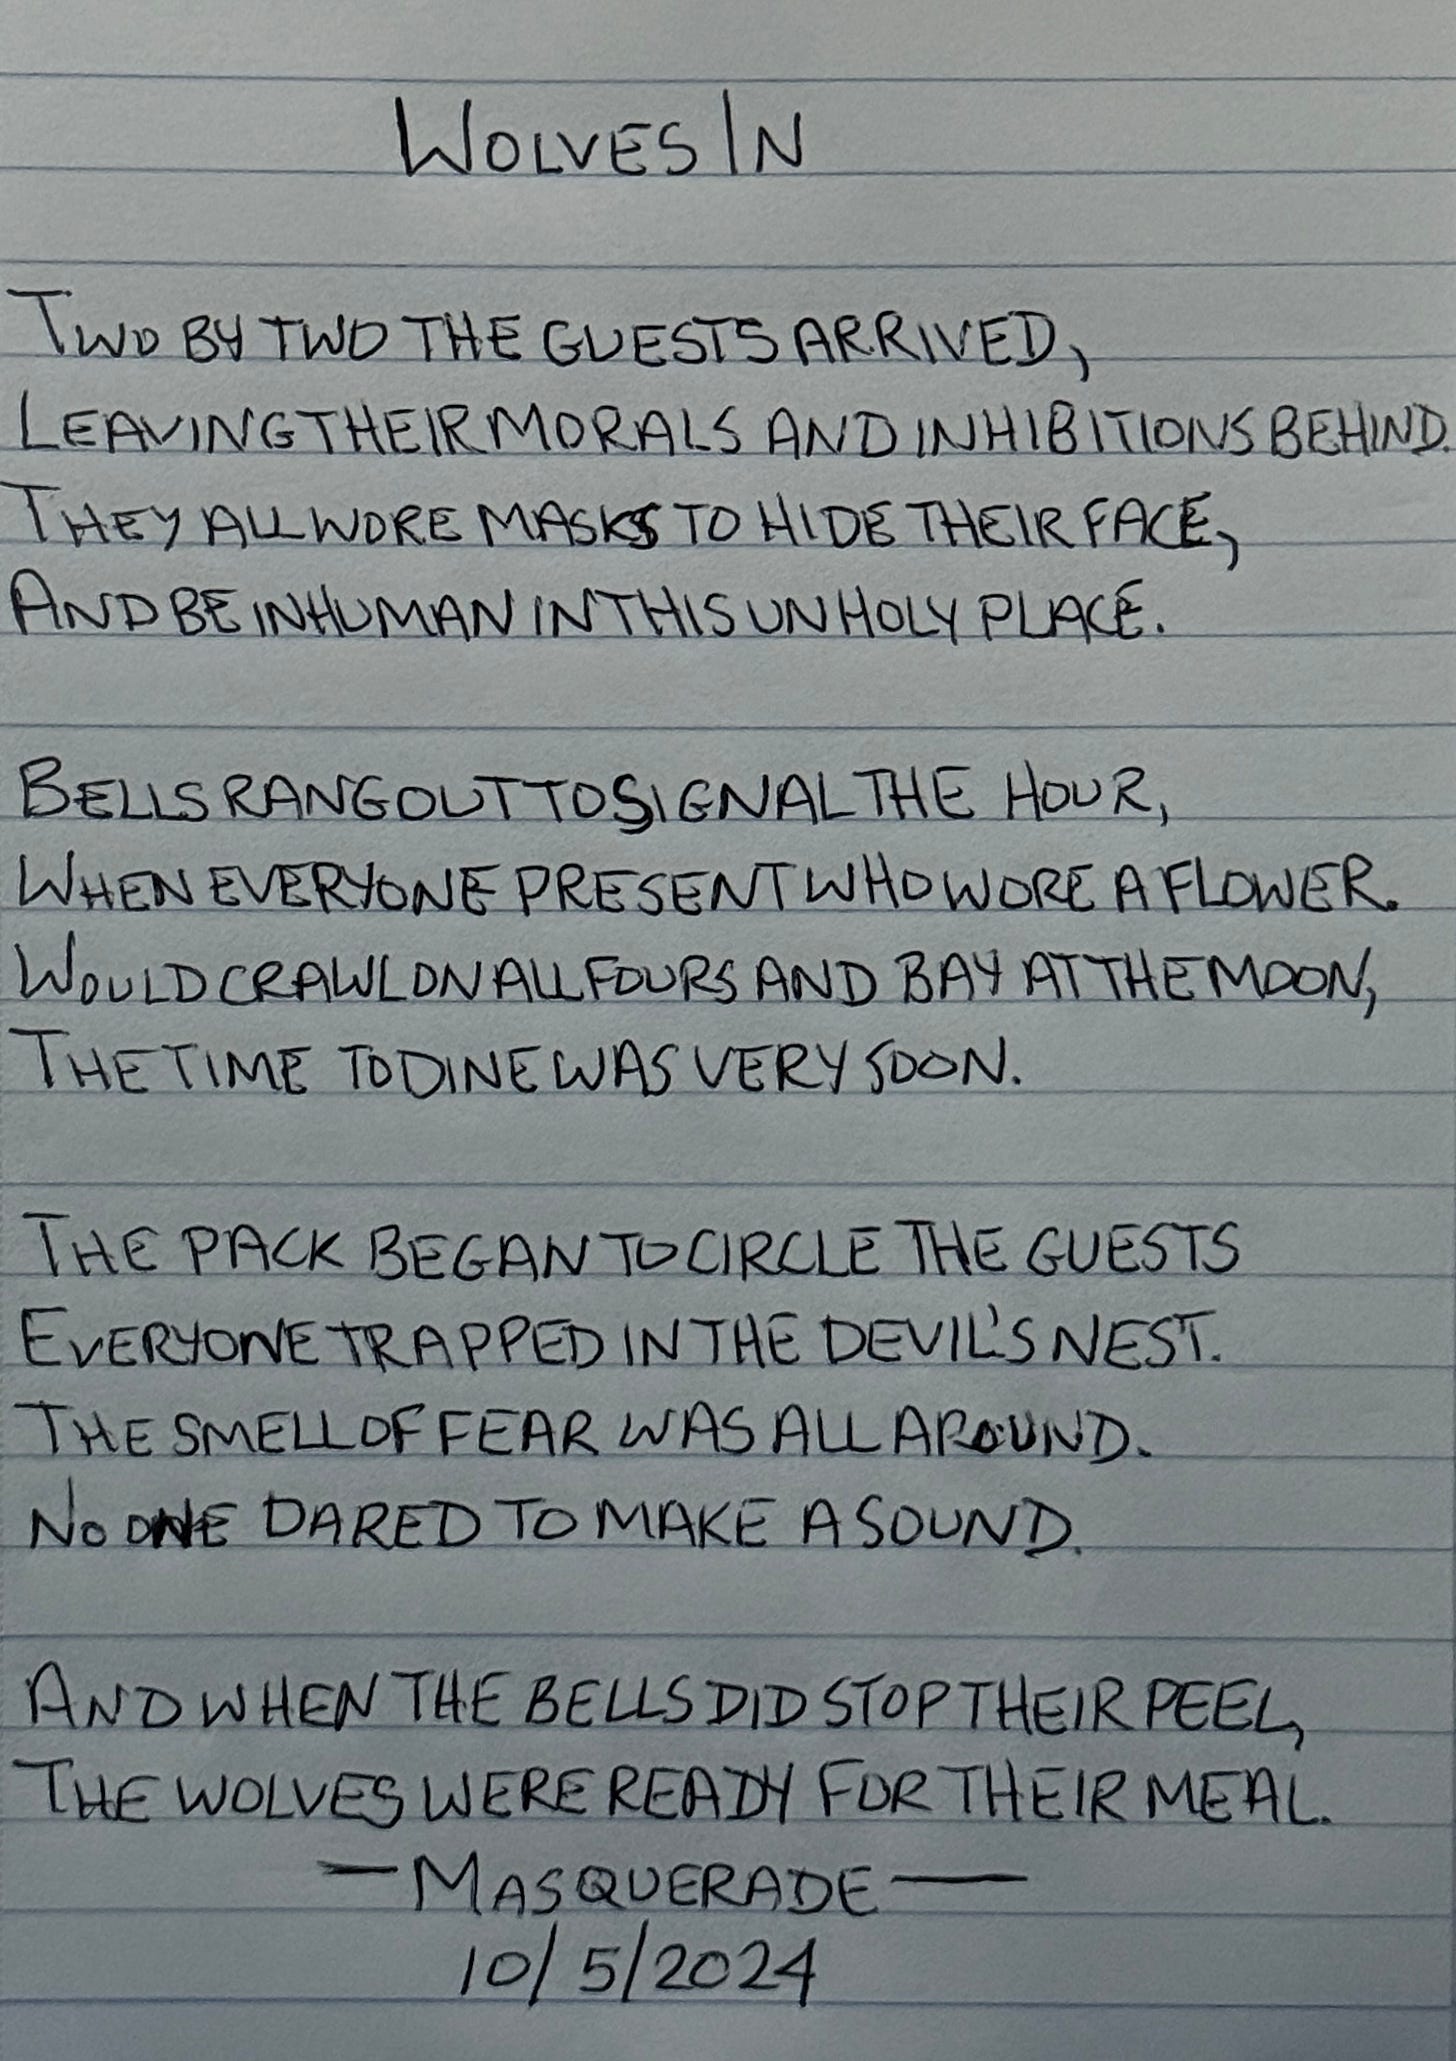 WOLVES IN
TWO BY TWO THE GUESTS ARRIVED,
LEAVING THEIR MORALS AND INHIBITIONS BEHIND.
THEY ALL WORE MASKS TO HIDE THEIR FACE,
AND BE INHUMAN IN THIS UNHOLY PLACE.
BELLS RANG OUT TO SIGNAL THE HOUR,
WHEN EVERYONE PRESENT WHO WORE A FLOWER.
WOULD CRAWL ON ALL FOURS AND BAY AT THE MOON,
THE TIME TO DINE WAS VERY SOON.
THE PACK BEGAN TO CIRCLE THE GUESTS
EVERYONE TRAPPED IN THE DEVIL'S NEST.
THE SMELL OF FEAR WAS ALL AROUND.
NO ONE DARED TO MAKE A SOUND.
AND WHEN THE BELLS DID STOP THEIR PEEL,
THE WOLVES WERE READY FOR THEIR MEAL.
— MASQUERADE —
10/5/2024